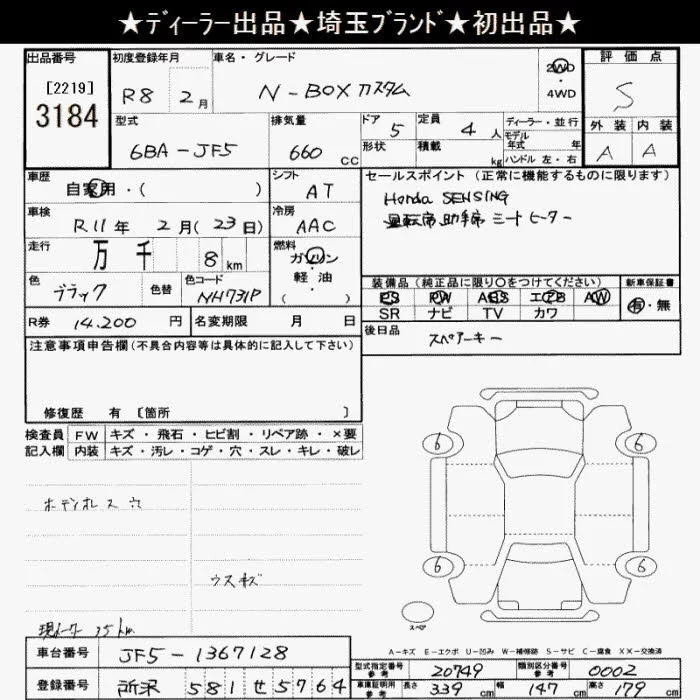 ★ディーラー出品★埼玉ブランド★初出品★
出品番号
[2219]
3184
初度登録年月
R8 2月
車名・グレード
N-BOX カスタム
2WD
・
4WD
評価点
S
外装 内装
A A
型式
6BA-JF5
排気量
660 CC
ドア 5
形状
定員 4 人
積載 kg
ディーラー・並行
モデル年式 年
ハンドル 左・右
車歴
自家用・( )
シフト
AT
車検
R11年 2月(23日)
冷房
AAC
走行
万 千 8 km
燃料
ガソリン
軽油
( )
色
ブラック
色替
色コード
NH731P
R券 14,200 円
名変期限 月 日
セールスポイント(正常に機能するものに限ります)
Honda SENSING
運転席 助手席 シートヒーター
装備品(純正品に限り○をつけてください)
PS PW ABS エアB AW
SR ナビ TV カワ
新車保証書
有・無
後日品
スペアーキー
注意事項申告欄(不具合内容等は具体的に記入して下さい)
修復歴 有 〔箇所 〕
検査員記入欄
FW キズ・飛石・ヒビ割・リペア跡・×要
内装 キズ・汚レ・コゲ・穴・スレ・キレ・破レ
穴
ウスキズ
現メーター 35km
6 6
6 6
スペア
A-キズ E-エクボ U-凹み W-補修跡 S-サビ C-腐食 XX-交換済
車台番号 JF5-1367128
登録番号 所沢 581 せ 5764
型式指定番号 参考 20749
類別区分番号 参考 0002
車庫証明用 参考 長さ 339 cm 幅 147 cm 高さ 179 cm